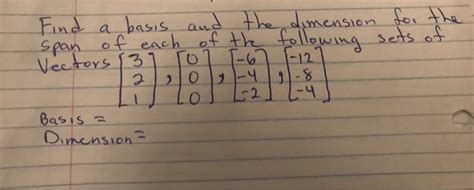 Find a basis and the dimension for the
span of each of the following sets of
Vectors [3 2 1], [0 0 0], [-6 -4 -2], [-12 -8 -4]
Basis =
Dimension =